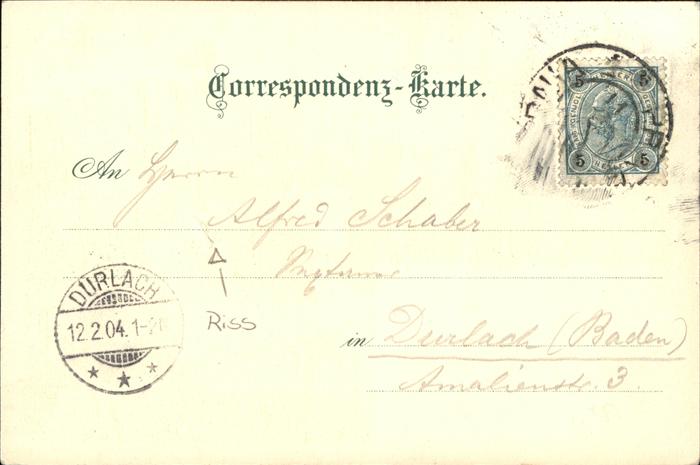 Correspondenz-Karte.
5 5
5 5
An Herrn
Alfred Schaber
Riss
in Durlach (Baden)
Amalienstr. 3.
DURLACH
12.2.04.1-2